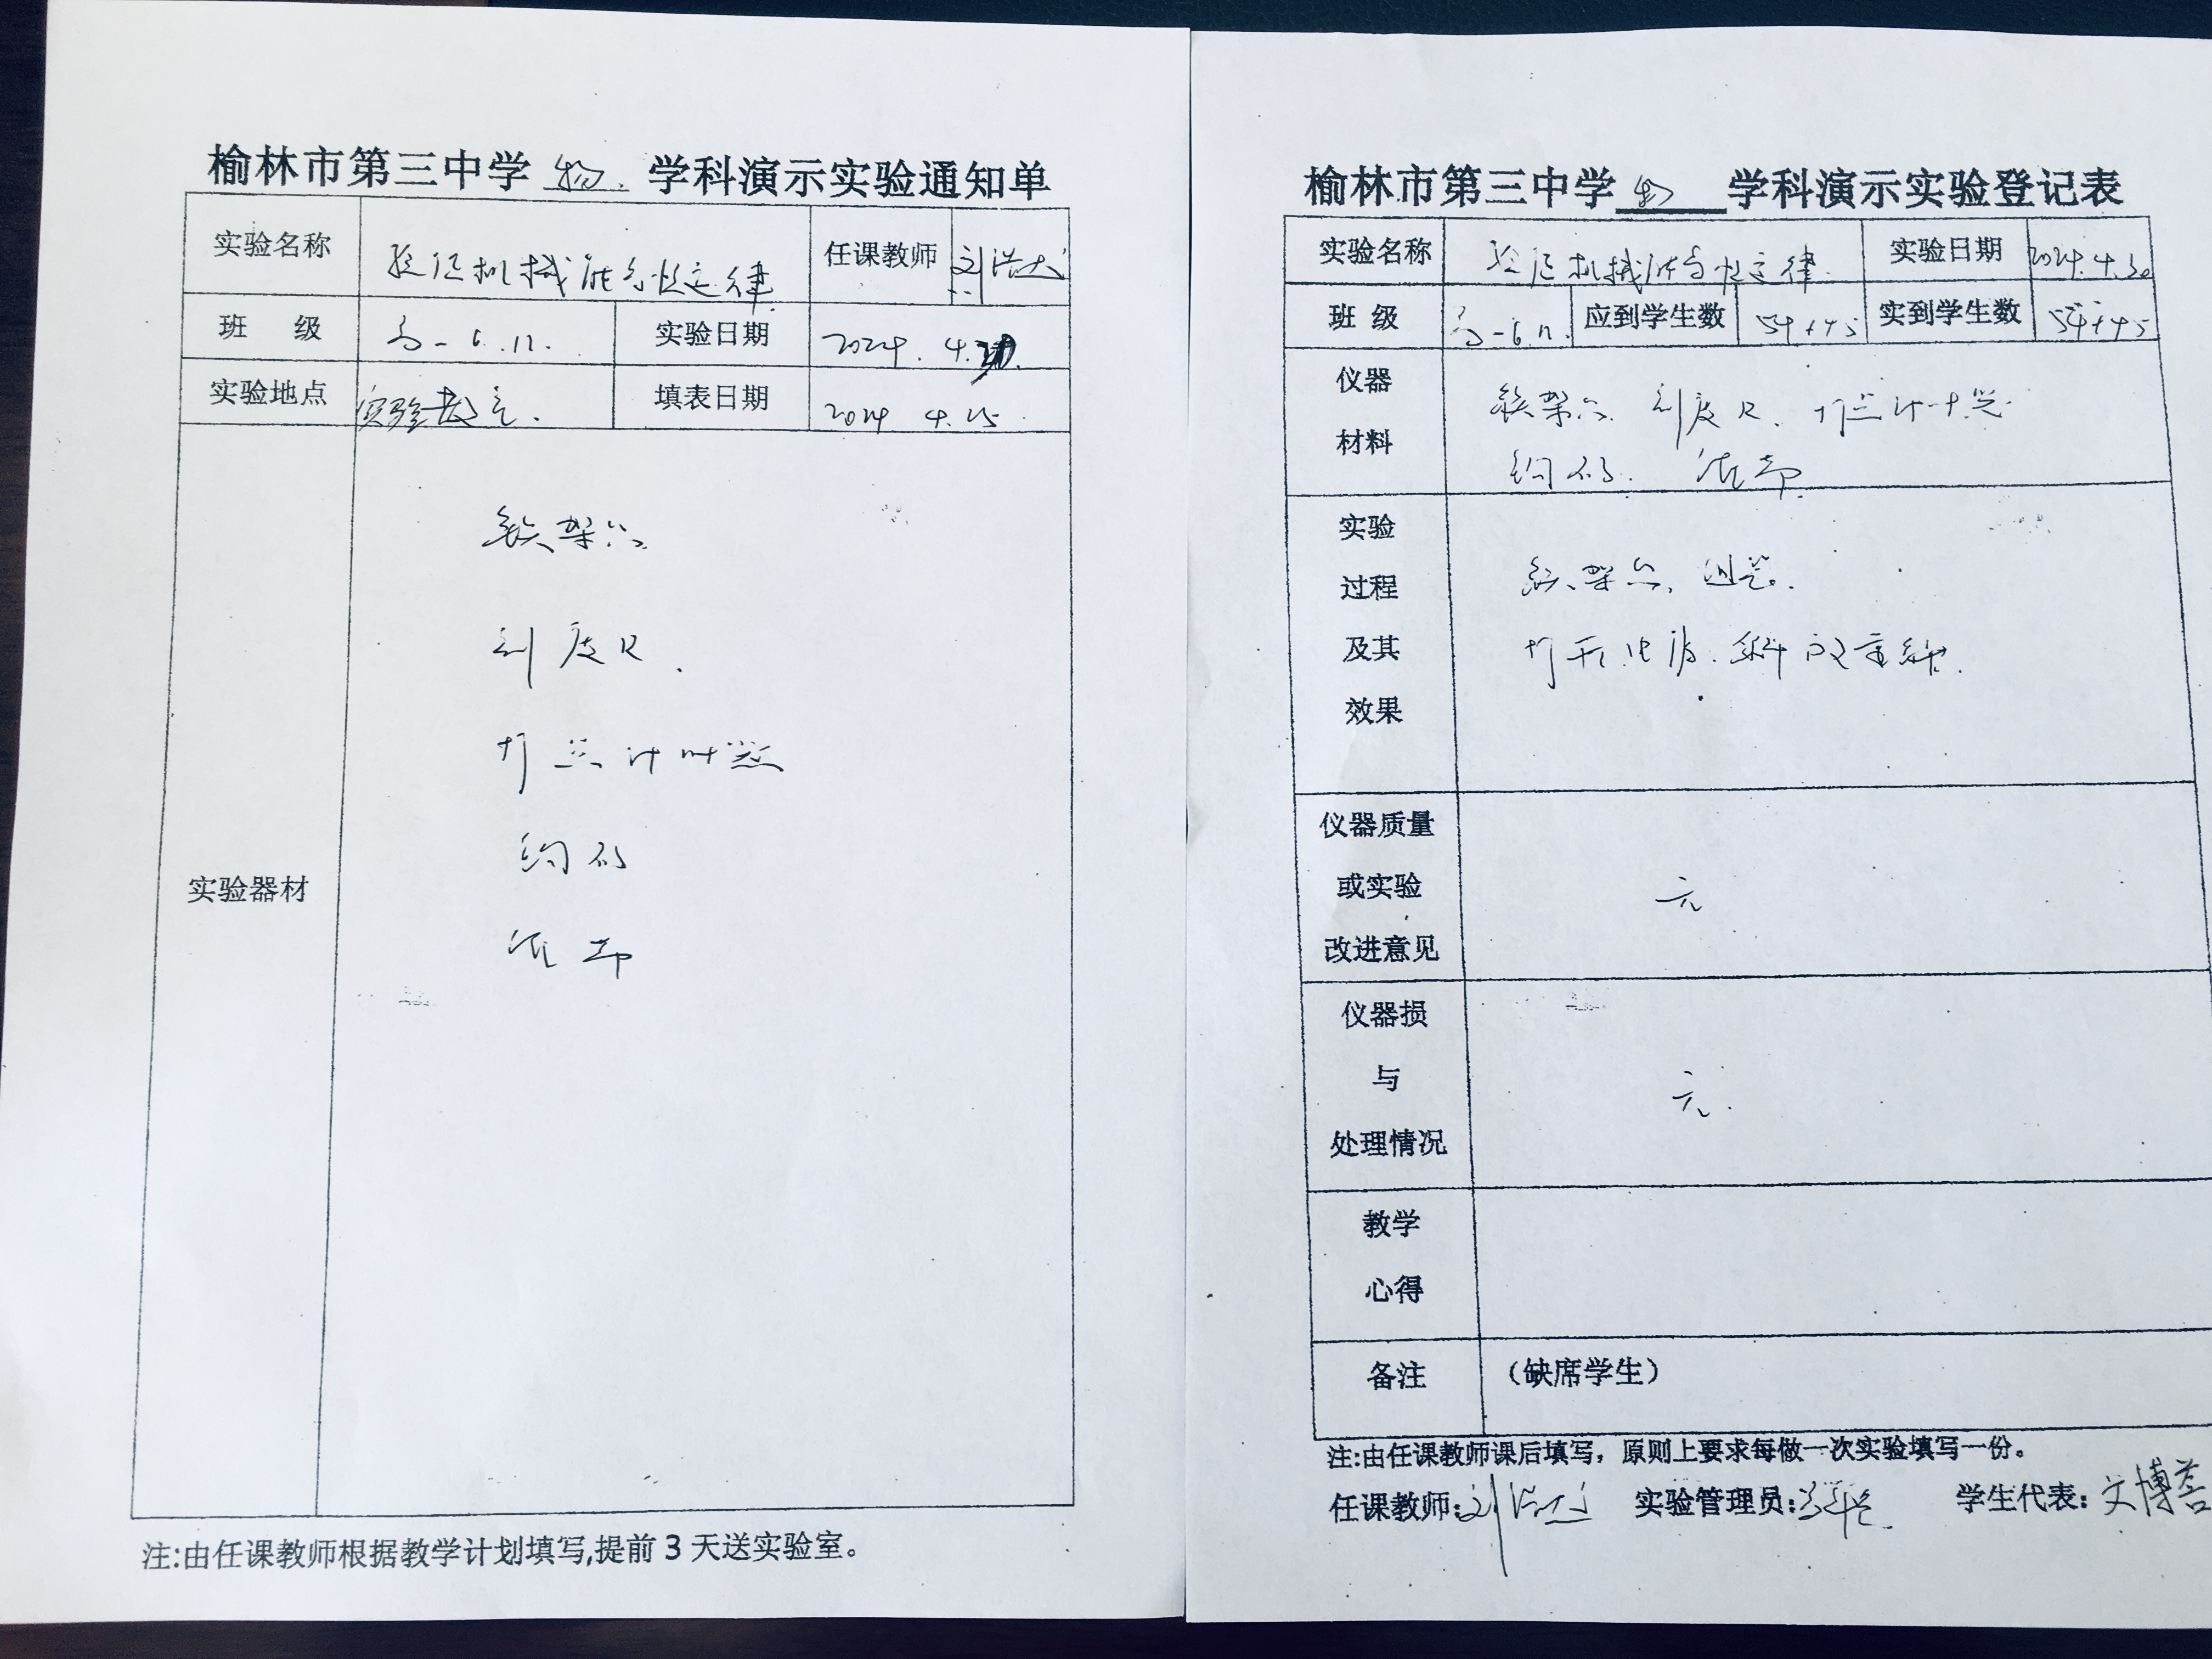 榆林市第三中学 物 学科演示实验通知单
实验名称 验证机械能守恒定律 任课教师 刘浩
班 级 高一6.12. 实验日期 2024.4.30.
实验地点 实验教室. 填表日期 2024 4.25
实验器材
铁架台
刻度尺.
打点计时器
钩码
纸带
注:由任课教师根据教学计划填写,提前3天送实验室。
榆林市第三中学 物 学科演示实验登记表
实验名称 验证机械能守恒定律 实验日期 2024.4.30
班 级 高一6.12. 应到学生数 54+45 实到学生数 54+45
仪器
材料
铁架台. 刻度尺. 打点计时器.
钩码. 纸带.
实验
过程
及其
效果
铁架台, 组装.
打开电源. 释放重锤.
仪器质量
或实验
改进意见
无
仪器损
与
处理情况
无.
教学
心得
备注 (缺席学生)
注:由任课教师课后填写，原则上要求每做一次实验填写一份。
任课教师:刘浩 实验管理员: 学生代表:文博